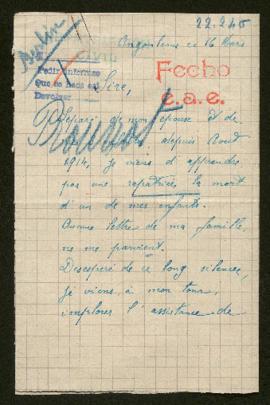 22.245
Berlin
Angoulême ce 16 Mars
Pedir informes
Que se hace
Devolver
Fecho
e.a.e.
Sire,
Séparé de mon épouse et de
depuis Août
1914, je viens d'apprendre
par une rapatriée, la mort
d'un de mes enfants.
Aucune lettre de ma famille,
ne me parvient.
Desesperé de ce long silence,
je viens, à mon tour,
implorer l'assistance de